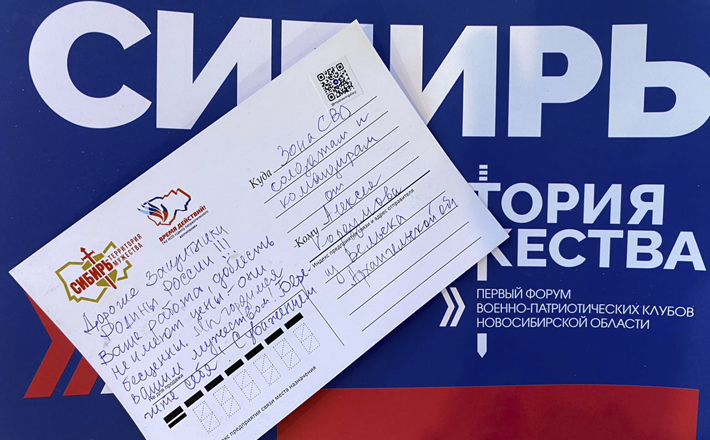 СИБИРЬ
ТОРИЯ
ЖЕСТВА
ПЕРВЫЙ ФОРУМ
ВОЕННО-ПАТРИОТИЧЕСКИХ КЛУБОВ
НОВОСИБИРСКОЙ ОБЛАСТИ
СИБИРЬ
ТЕРРИТОРИЯ
МУЖЕСТВА
ВРЕМЯ ДЕЙСТВИЙ!
Дорогие Защитники
Родины России!!!
Ваша работа доблесть
не имеют цены они
бесценны. Мы гордимся
вашим мужеством. Бере
гите себя! С уважением
Куда Зона СВО
солдатам и
командирам
от
Кому Алекса
Индекс предприятия связи и адрес отправителя
из Вельска
Архангельской обл
Индекс предприятия связи места назначения